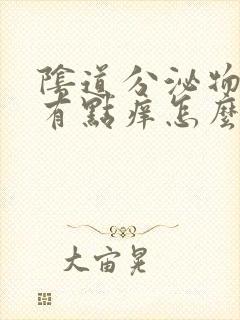 陰道分泌物
有點痒怎麼
大宙晃